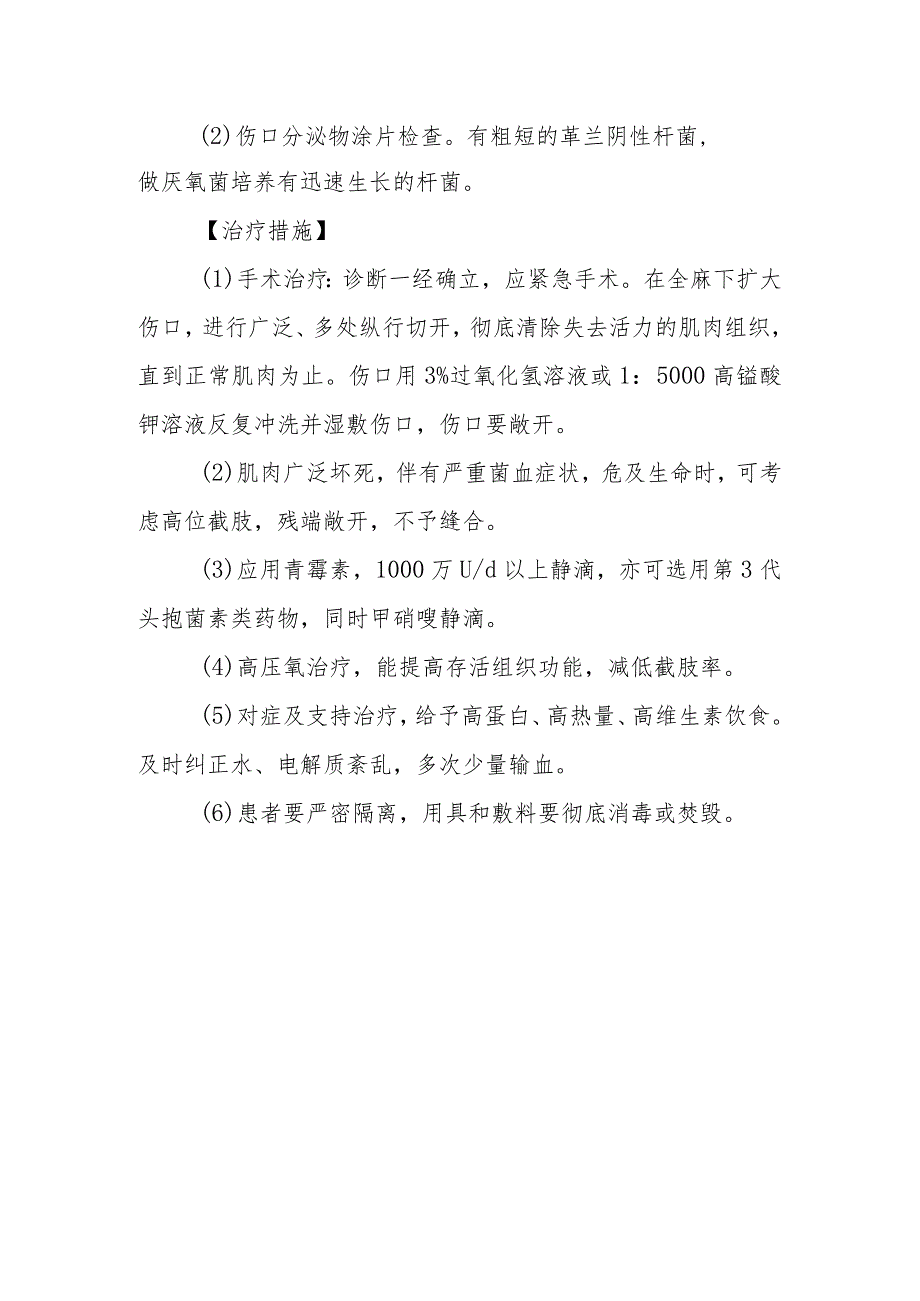 (2)伤口分泌物涂片检查。有粗短的革兰阴性杆菌,
做厌氧菌培养有迅速生长的杆菌。
【治疗措施】
(1)手术治疗:诊断一经确立，应紧急手术。在全麻下扩大
伤口，进行广泛、多处纵行切开，彻底清除失去活力的肌肉组织，
直到正常肌肉为止。伤口用3%过氧化氢溶液或1：5000高镒酸
钾溶液反复冲洗并湿敷伤口，伤口要敞开。
(2)肌肉广泛坏死，伴有严重菌血症状，危及生命时，可考
虑高位截肢，残端敞开，不予缝合。
(3)应用青霉素，1000万U/d以上静滴，亦可选用第3代
头抱菌素类药物，同时甲硝嗖静滴。
(4)高压氧治疗，能提高存活组织功能，减低截肢率。
(5)对症及支持治疗，给予高蛋白、高热量、高维生素饮食。
及时纠正水、电解质紊乱，多次少量输血。
(6)患者要严密隔离，用具和敷料要彻底消毒或焚毁。